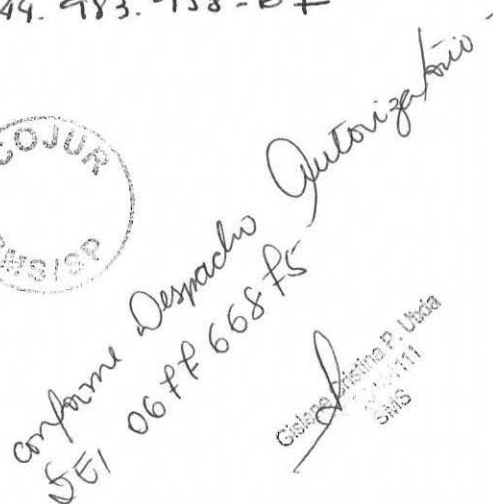 44.983.938-07
COJUR
SMS/SP
conforme Despacho Autorizatório
SEI 067766875
Gislene Cristina P.
111
SMS